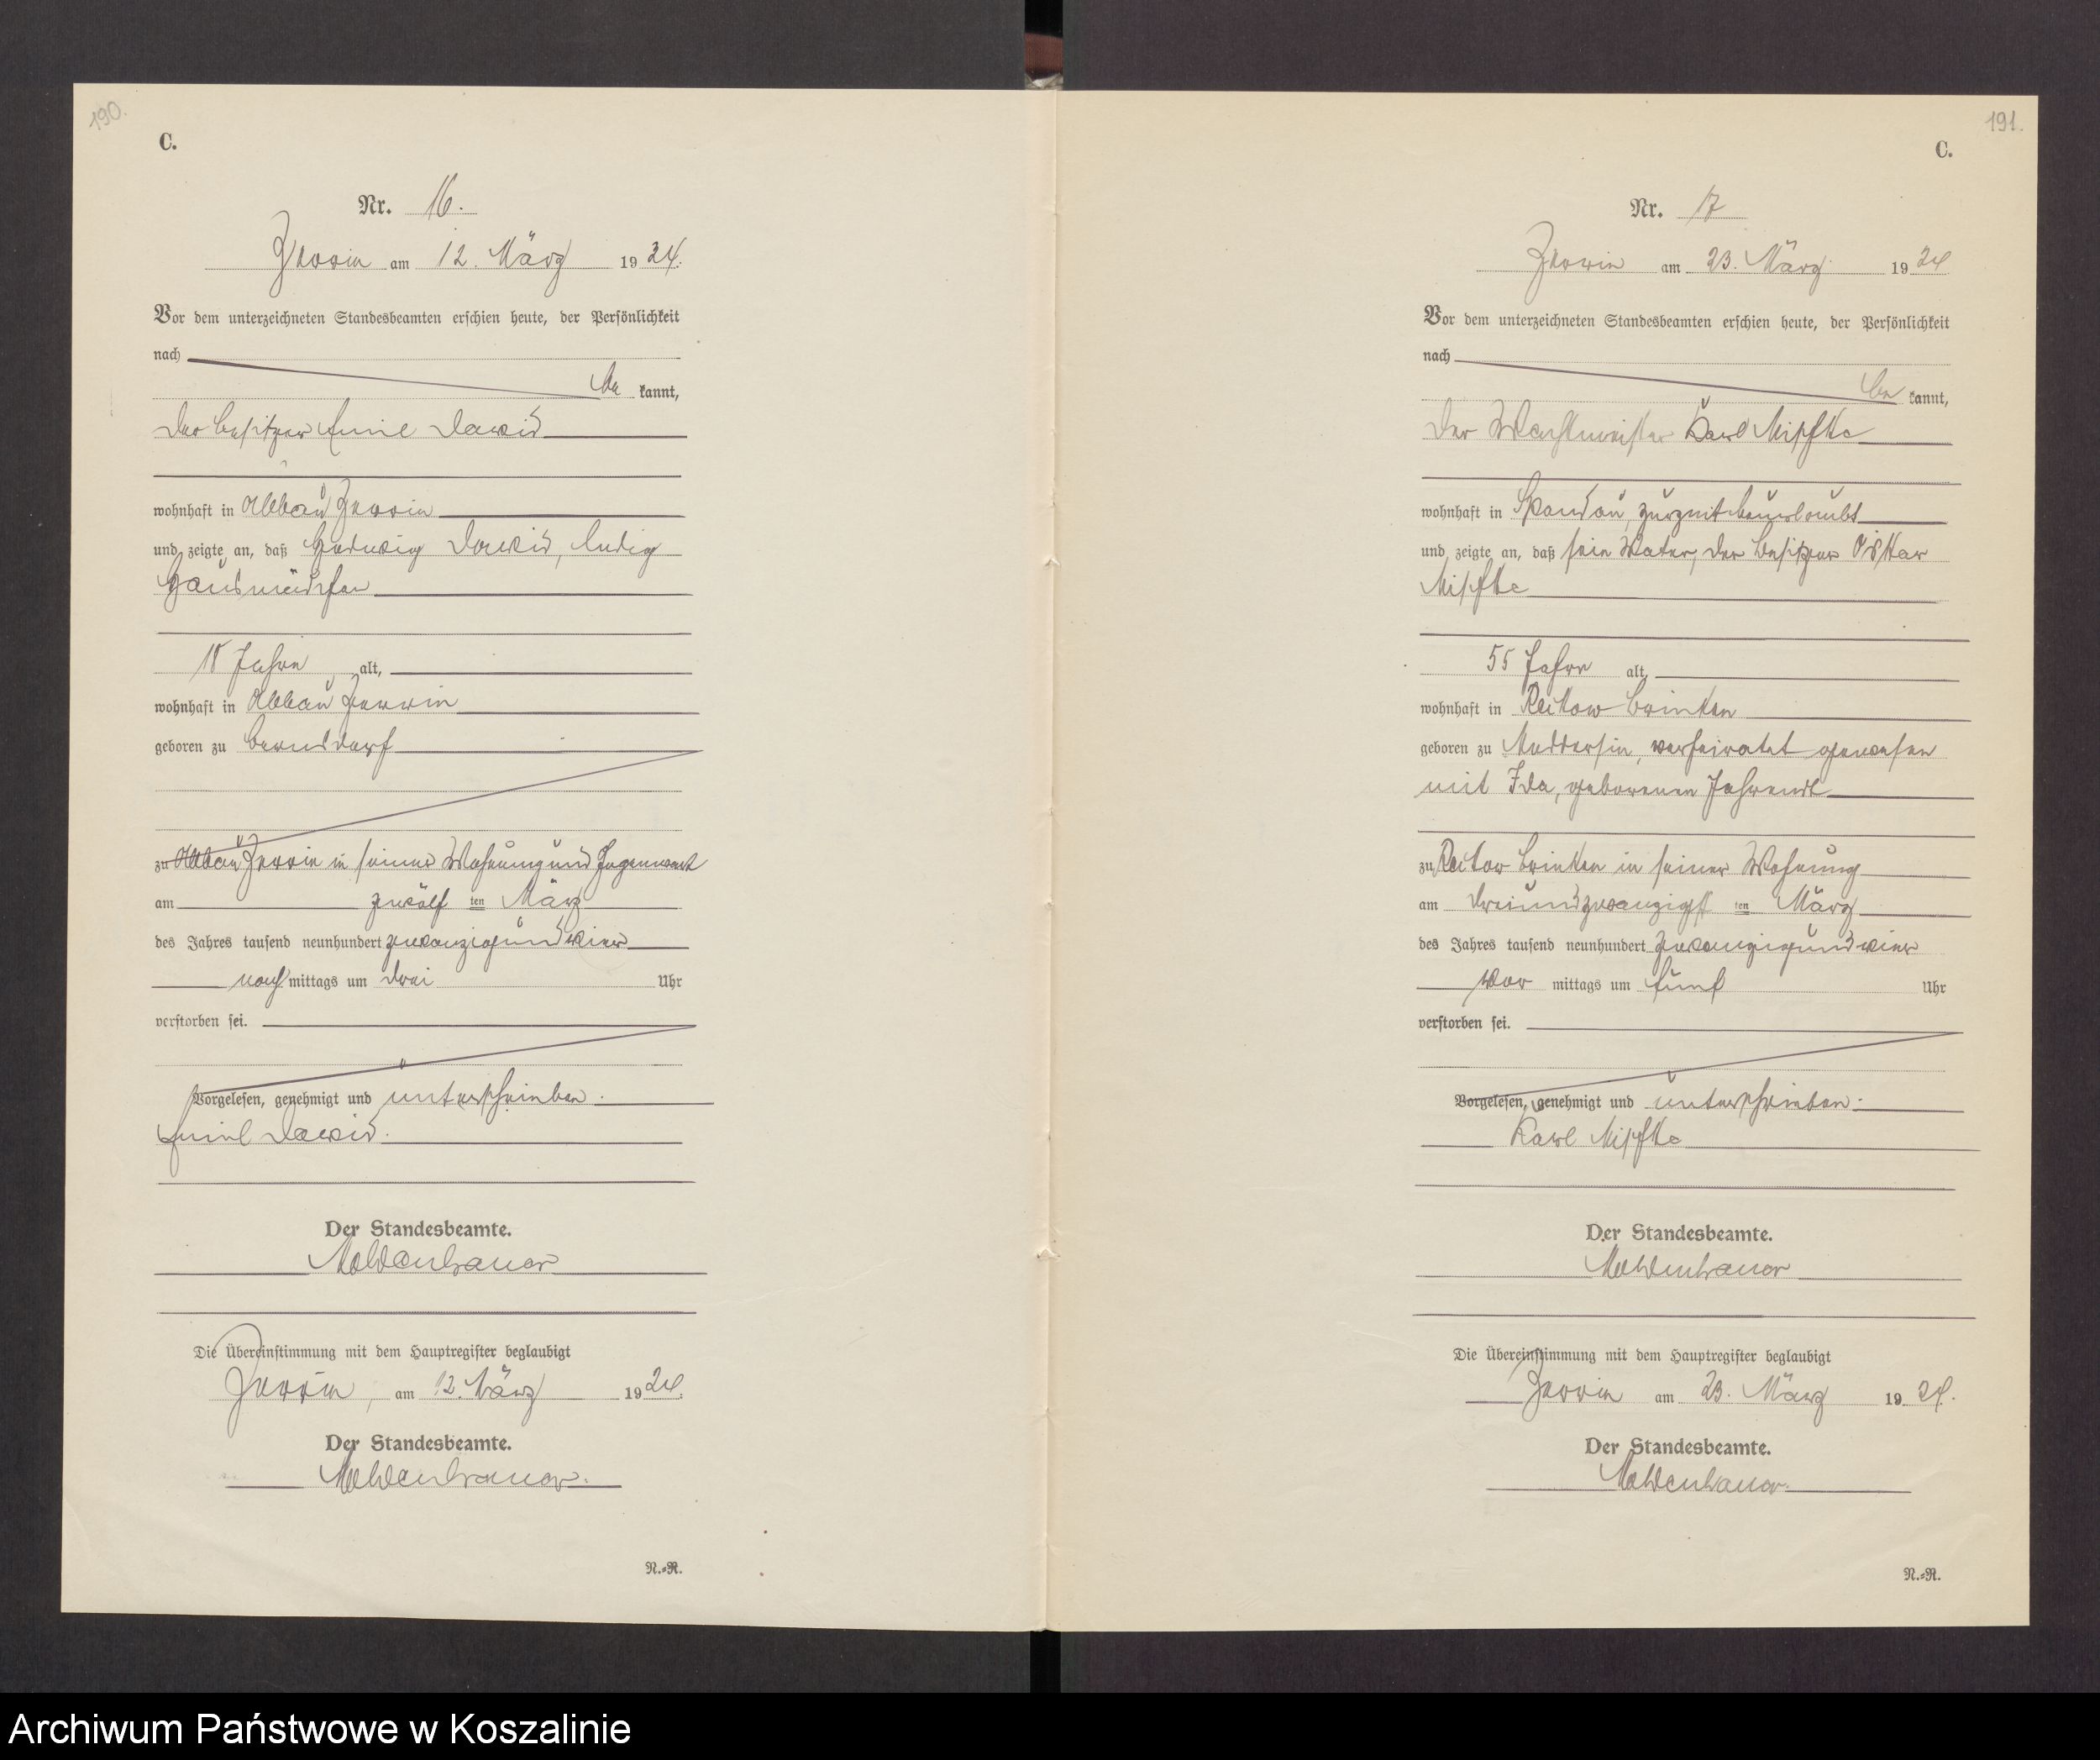 190.
C.
Nr. 16.
Jerrin am 12. März 1924.
Vor dem unterzeichneten Standesbeamten erschien heute, der Persönlichkeit
nach
be kannt,
der Besitzer Emil Dawid
wohnhaft in Abbau Jerrin
und zeigte an, daß Hedwig Dawid, ledig
Hausmädchen
18 Jahre alt,
wohnhaft in Abbau Jerrin
geboren zu Bernsdorf
zu Abbau Jerrin in seiner Wohnung und Gegenwart
am zwölf ten März
des Jahres tausend neunhundert zwanzigundvier
nach mittags um drei Uhr
verstorben sei.
Vorgelesen, genehmigt und unterschrieben.
Emil Dawid.
Der Standesbeamte.
Moldenhauer
Die Übereinstimmung mit dem Hauptregister beglaubigt
Jerrin, am 12. März 1924.
Der Standesbeamte.
Moldenhauer.
N.=R.
191.
C.
Nr. 17
Jerrin am 23. März 1924
Vor dem unterzeichneten Standesbeamten erschien heute, der Persönlichkeit
nach
be kannt,
der Wachtmeister Karl Mischke
wohnhaft in Spandau, zurzeit beurlaubt
und zeigte an, daß sein Vater, der Besitzer Oskar
Mischke
55 Jahre alt,
wohnhaft in Reckow Brinken
geboren zu Meddersin, verheiratet gewesen
mit Ida, geborenen
zu Reckow Brinken in seiner Wohnung
am dreiundzwanzigst ten März
des Jahres tausend neunhundert zwanzigundvier
vor mittags um fünf Uhr
verstorben sei.
Vorgelesen, genehmigt und unterschrieben.
Karl Mischke
Der Standesbeamte.
Moldenhauer
Die Übereinstimmung mit dem Hauptregister beglaubigt
Jerrin am 23. März 1924.
Der Standesbeamte.
Moldenhauer.
N.=R.
Archiwum Państwowe w Koszalinie